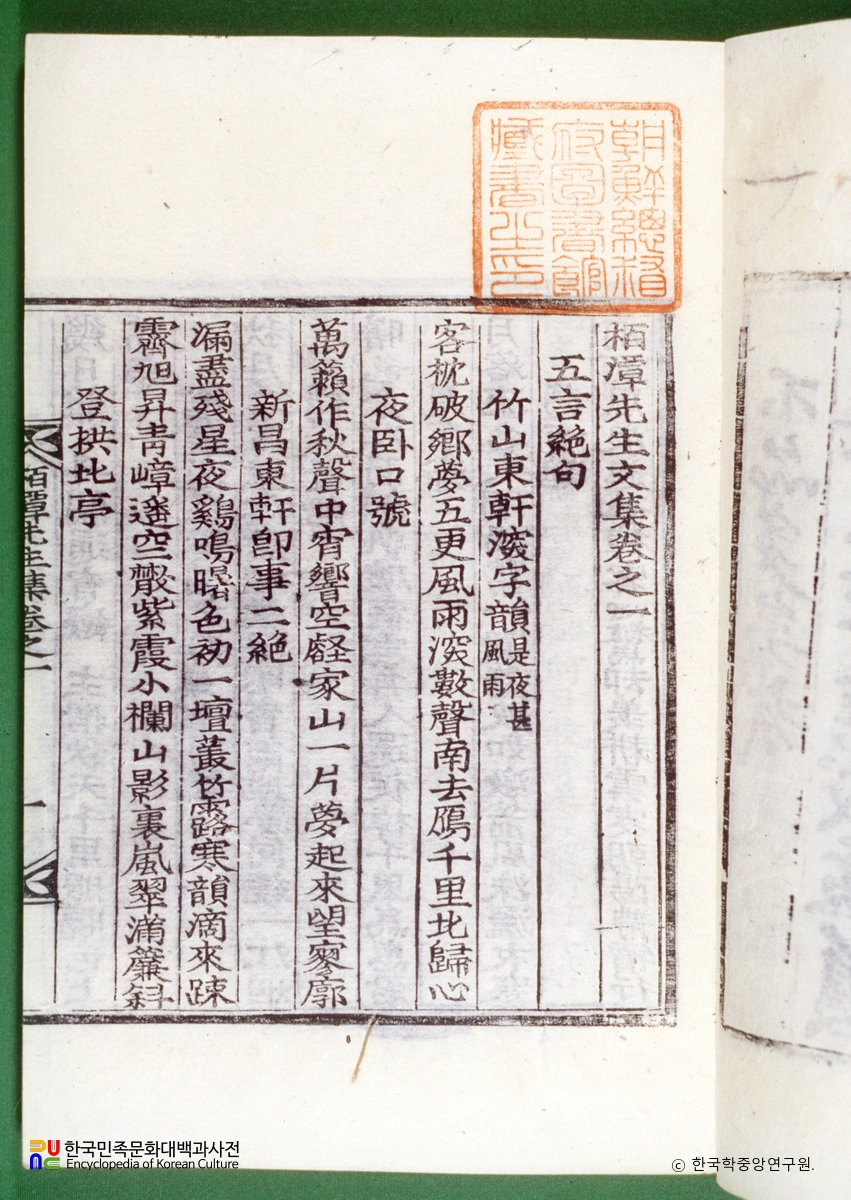 朝鮮總督
府圖書館
藏書之印
栢潭先生文集卷之一
五言絶句
竹山東軒淡字韻是夜甚風雨
客枕破鄉夢五更風雨深數聲南去鴈千里北歸心
夜卧口號
萬籟作秋聲中宵響空壑家山一片夢起來望寥廓
新昌東軒卽事二絶
漏盡殘星夜鷄鳴曙色初一壇叢竹露寒韻滴來踈
霽旭昇靑嶂遙空散紫霞小欄山影裏嵐翠滿簾斜
登拱北亭
栢潭先生集卷之一
一
한국민족문화대백과사전
Encyclopedia of Korean Culture
© 한국학중앙연구원.